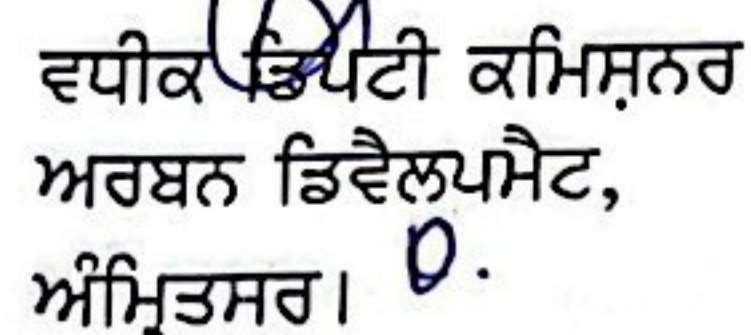 ਵਧੀਕ ਡਿਪਟੀ ਕਮਿਸ਼ਨਰ
ਅਰਬਨ ਡਿਵੈਲਪਮੈਟ,
ਅੰਮ੍ਰਿਤਸਰ।